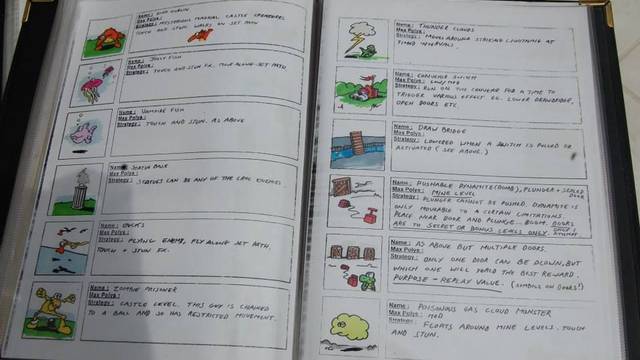 Name:
Max Polys:
Strategy: MYSTERIOUS MAGICAL CASTLE CREATURES
TOUCH AND STUN. WALKS ON SET PATH
Name: JELLY FISH
Max Polys:
Strategy: TOUCH AND STUN FX. MOVE ALONG SET PATH
Name: VAMPIRE FISH
Max Polys:
Strategy: TOUCH AND STUN. AS ABOVE
Name: STATUE BASE
Max Polys:
Strategy: STATUES CAN BE ANY OF THE ENEMIES
Name: DUCKS
Max Polys:
Strategy: FLYING ENEMY, FLY ALONG SET PATH
TOUCH + STUN FX.
Name: ZOMBIE PRISONER
Max Polys:
Strategy: CASTLE LEVEL. THIS GUY IS CHAINED
TO A BALL AND SO HAS RESTRICTED MOVEMENT.
Name: THUNDER CLOUDS
Max Polys:
Strategy: MOVES AROUND STRIKING LIGHTNING AT
TIMED INTERVALS.
Name: CONVEYOR SWITCH
Max Polys:
Strategy: RUN ON THE CONVEYOR FOR A TIME TO
TRIGGER VARIOUS EFFECT EG. LOWER DRAWBRIDGE,
OPEN DOORS ETC.
Name: DRAW BRIDGE
Max Polys:
Strategy: LOWERED WHEN A SWITCH IS PULLED OR
ACTIVATED (SEE ABOVE.)
Name: PUSHABLE DYNAMITE (BOMB), PLUNGER + SEALED
DOOR
Max Polys: MINE LEVEL
Strategy: PLUNGER CANNOT BE PUSHED. DYNAMITE IS
ONLY MOVEABLE TO A CERTAIN LIMITATIONS.
PLACE NEAR DOOR AND PLUNGE... BOOM. DOORS
ARE TO SECRET OR BONUS LEVELS ONLY.
Name: AS ABOVE BUT MULTIPLE DOORS
Max Polys:
Strategy: ONLY ONE DOOR CAN BE BLOWN, BUT
WHICH ONE WILL YIELD THE BEST REWARD.
PURPOSE - REPLAY VALUE. (SYMBOLS ON DOORS!)
Name: POISONOUS GAS CLOUD MONSTER
Max Polys: MED
Strategy: FLOATS AROUND MINE LEVELS. TOUCH
AND STUN.